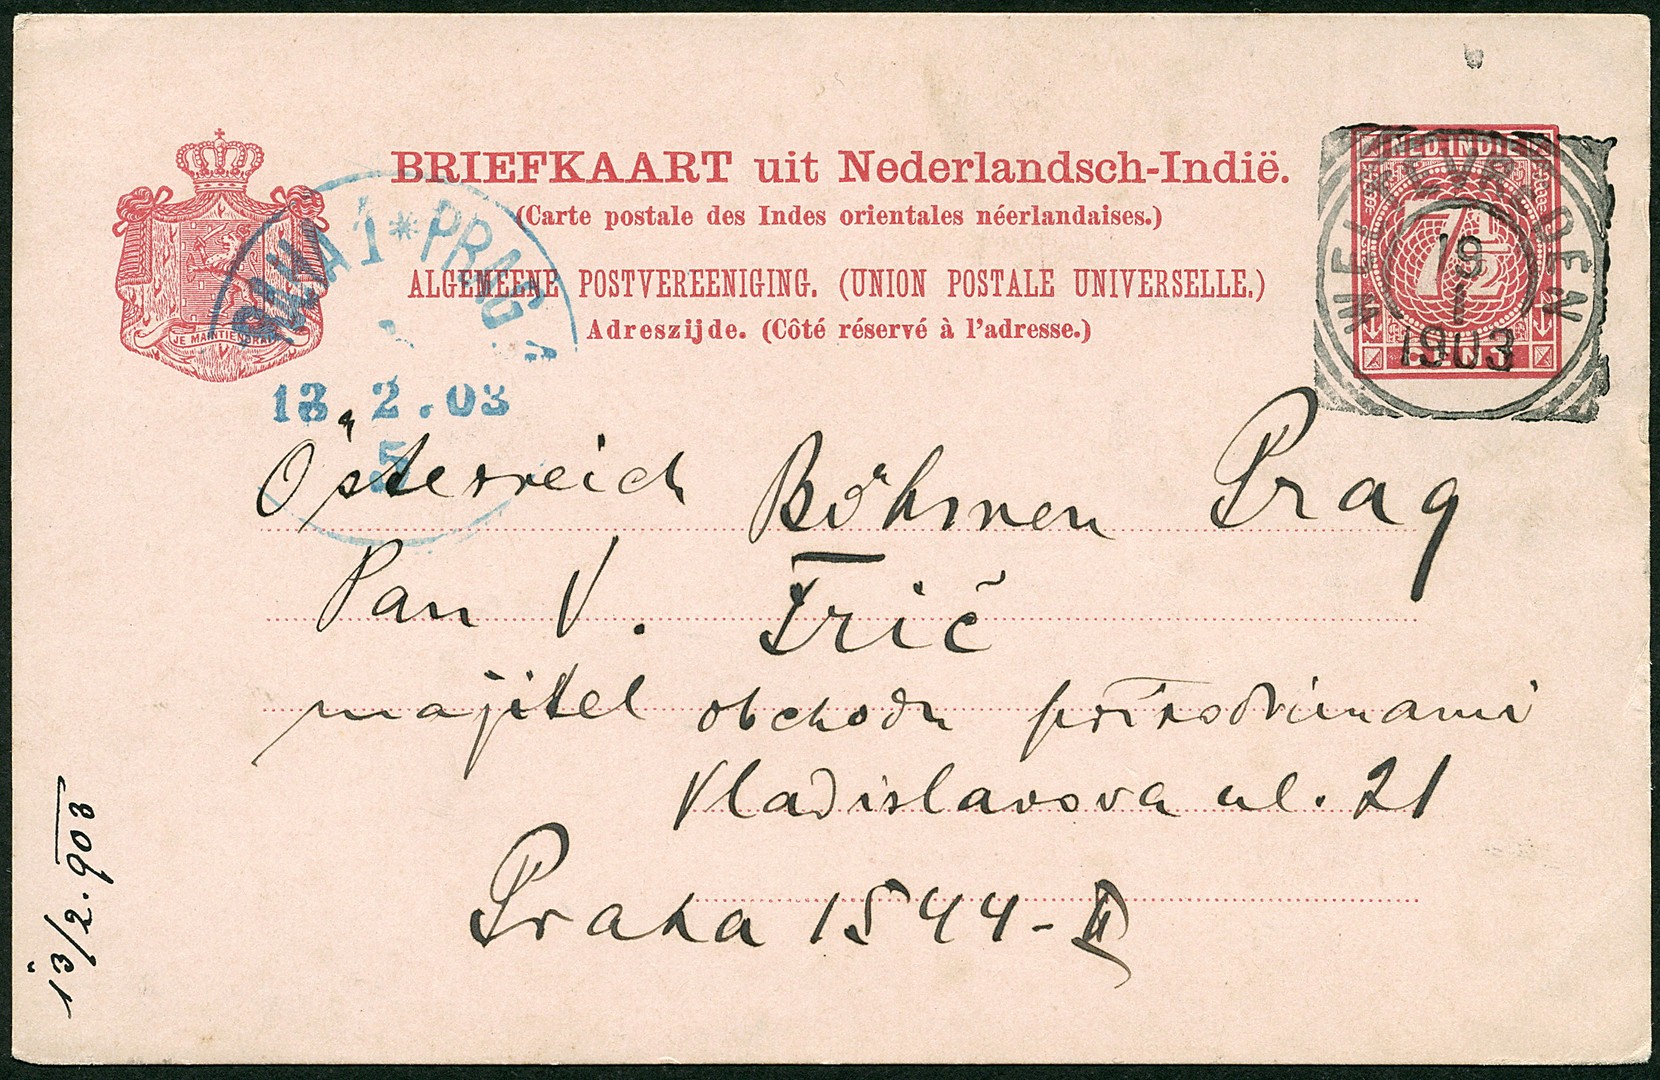 BRIEFKAART uit Nederlandsch-Indië.
(Carte postale des Indes orientales néerlandaises.)
ALGEMEENE POSTVEREENIGING. (UNION POSTALE UNIVERSELLE.)
Adreszijde. (Côté réservé à l'adresse.)
JE MAINTIENDRAI
NED. INDIE
7 1/2
CENT
WELTEVREDEN
19
1
1903
PRAHA 1 * PRAG
13 2.03
5
Österreich Böhmen Prag
Pan V. Frič
majitel obchodu přírodninami
Vladislavova ul. 21
Praha 1544-II
13/2.903